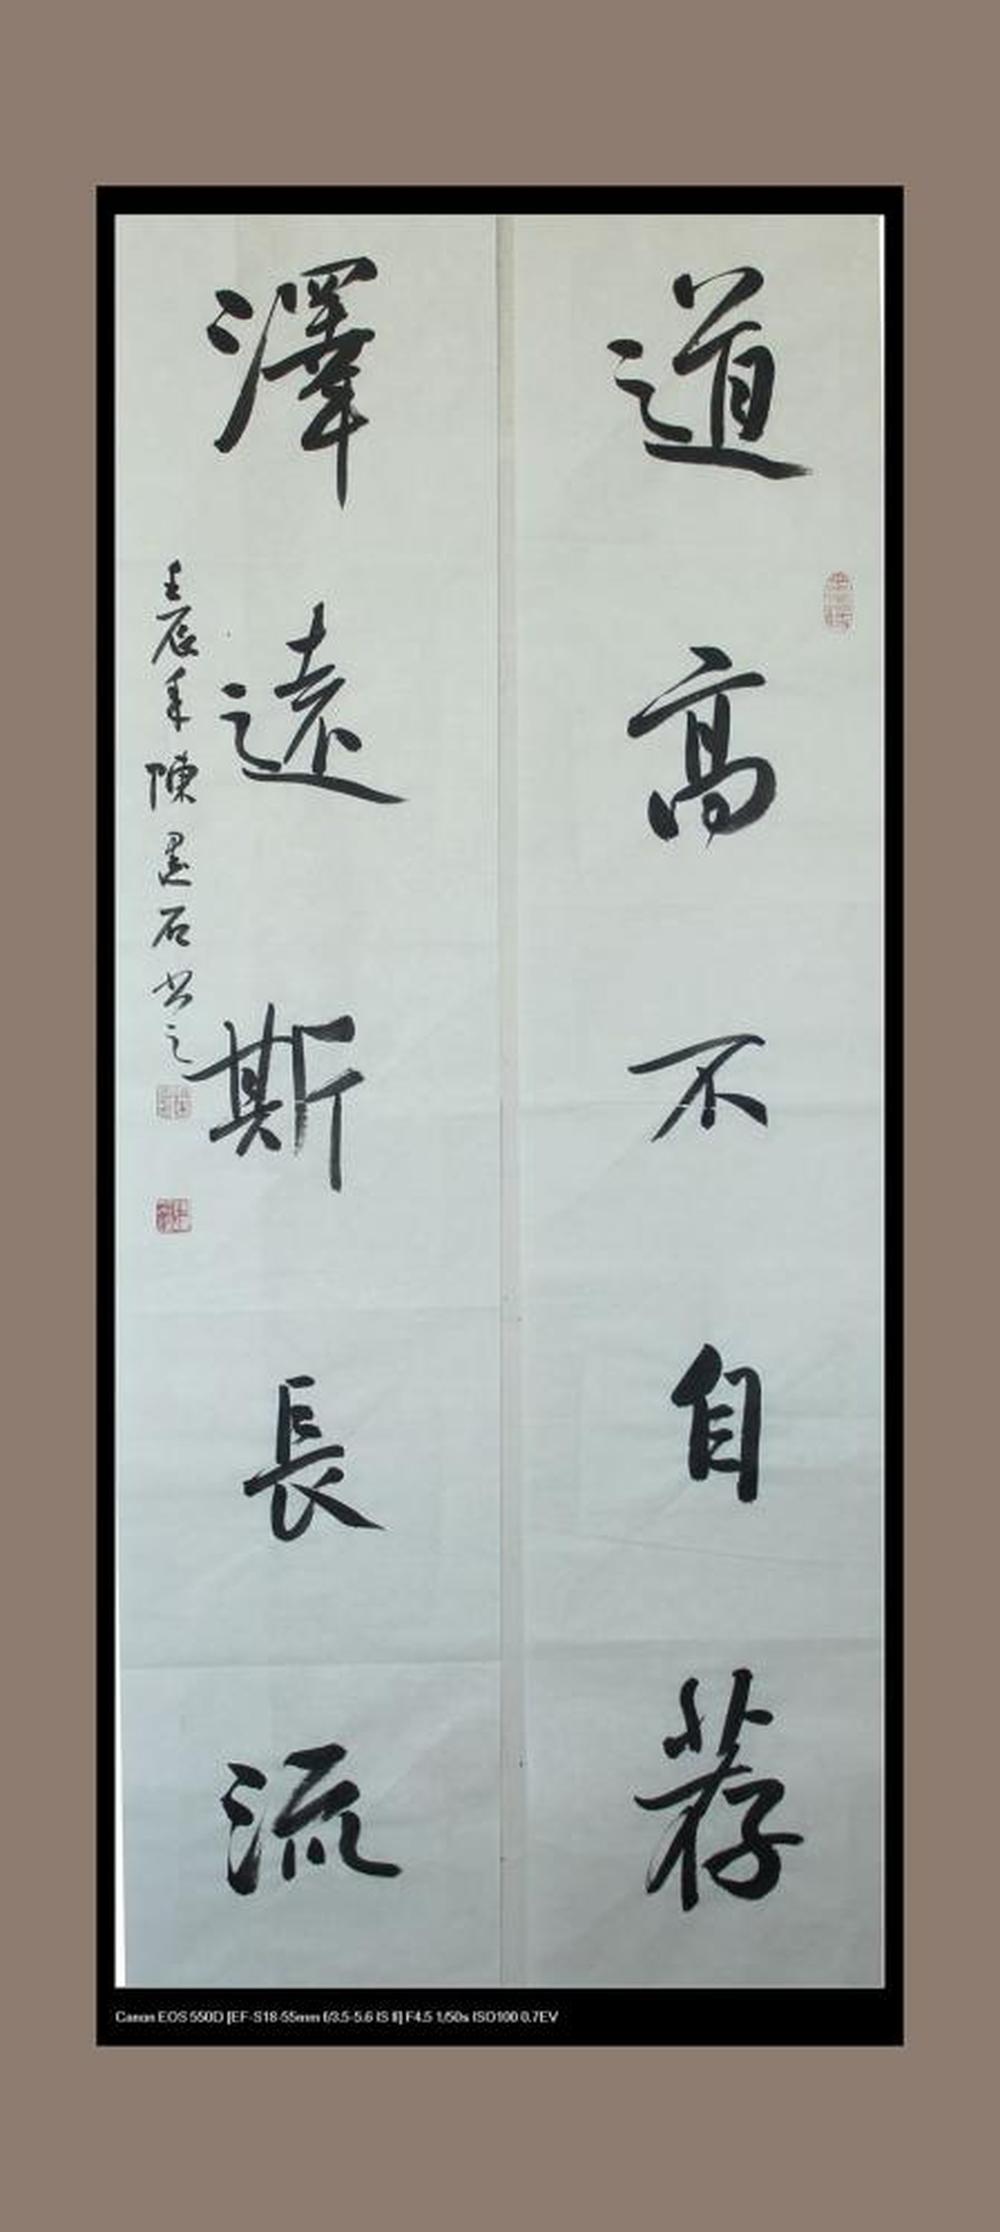 道高不自荐
澤遠斯長流
壬辰年陳墨石书之
Canon EOS 550D [EF-S18-55mm f/3.5-5.6 IS II] F4.5 1/50s ISO100 0.7EV